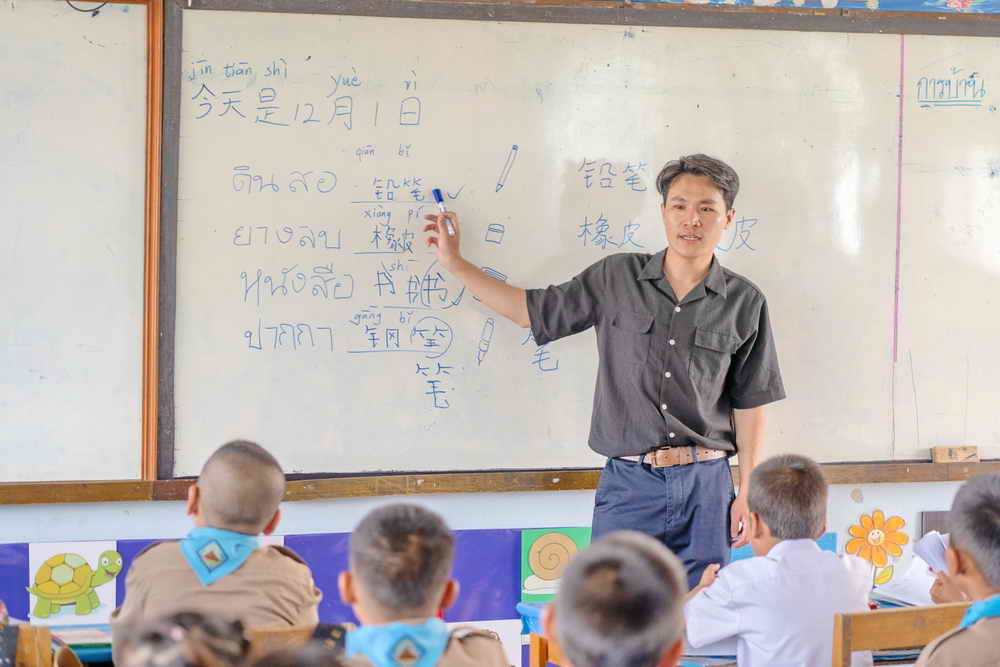 jīn tiān shì yuè rì
今天是12月1日
การบ้าน
qiān bǐ
ดินสอ 铅笔 铅笔
xiàng pí
ยางลบ 橡皮 橡皮 皮
shū
หนังสือ 书 书
gāng bǐ
ปากกา 钢笔 笔
笔